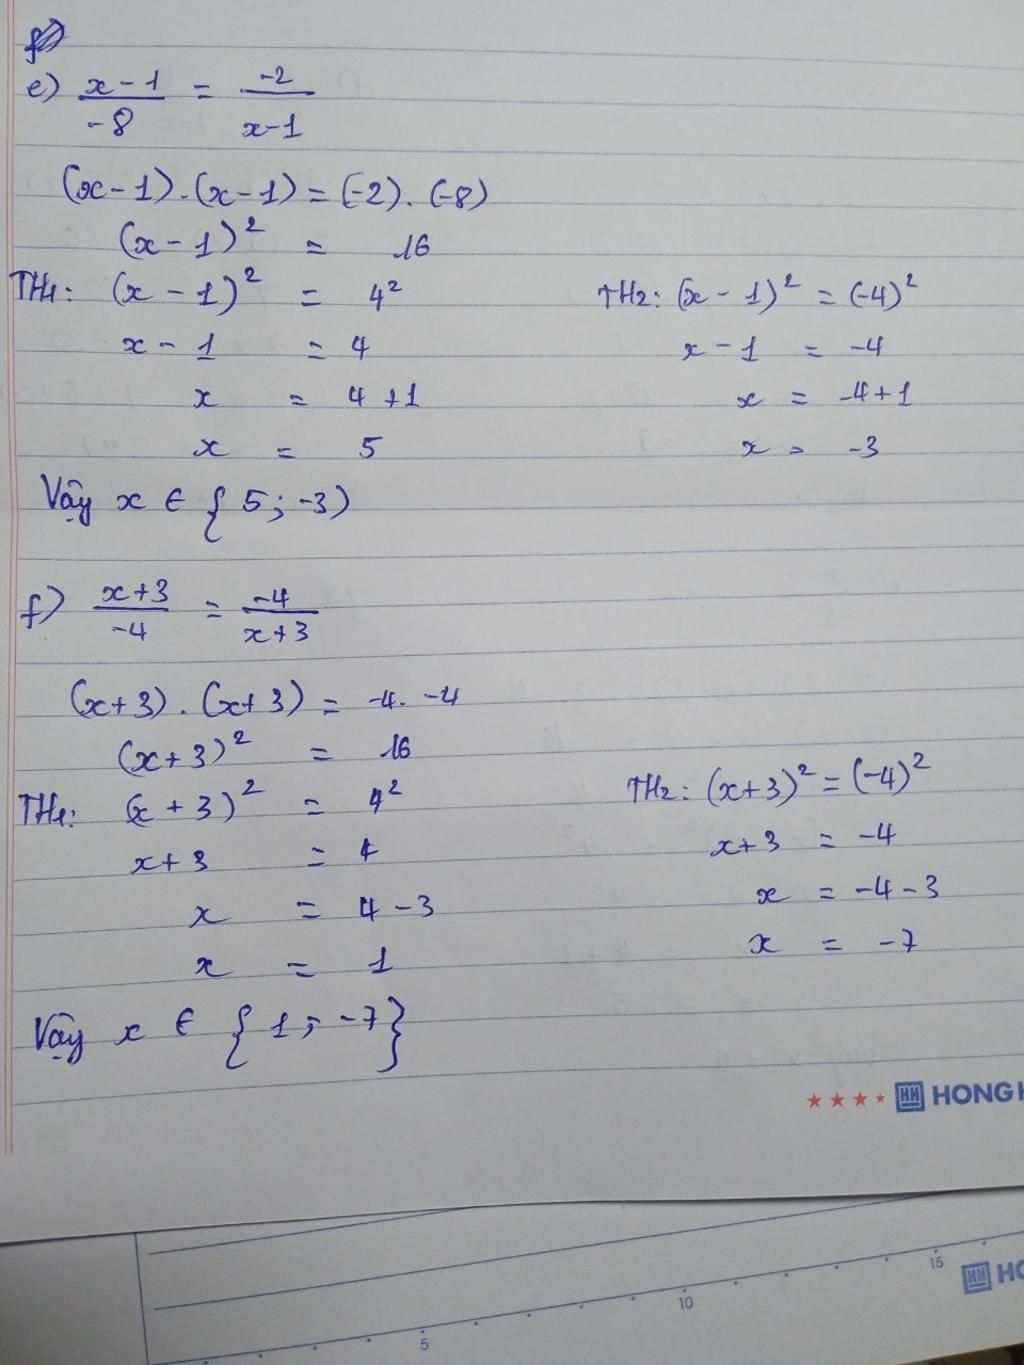 e) x-1/-8 = -2/x-1
(x-1).(x-1) = (-2).(-8)
(x-1)² = 16
TH1: (x-1)² = 4²
x-1 = 4
x = 4+1
x = 5
TH2: (x-1)² = (-4)²
x-1 = -4
x = -4+1
x = -3
Vậy x ∈ {5; -3)
f) x+3/-4 = -4/x+3
(x+3).(x+3) = -4. -4
(x+3)² = 16
TH1: (x+3)² = 4²
x+3 = 4
x = 4-3
x = 1
TH2: (x+3)² = (-4)²
x+3 = -4
x = -4-3
x = -7
Vậy x ∈ {1; -7}
HONG
5 10 15